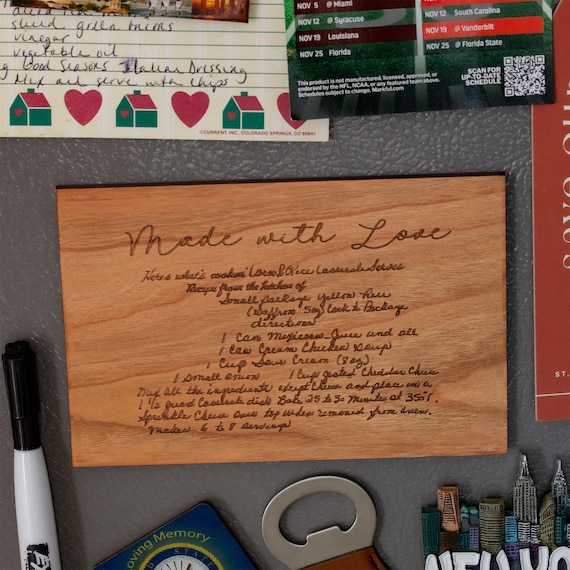 sliced green onions
vinegar
vegetable oil
Good Seasons Italian Dressing
Mix and serve with chips
©CURRENT, INC., COLORADO SPRINGS, CO 80941
NOV 5 @ Miami
NOV 12 @ Syracuse
NOV 19 Louisiana
NOV 25 Florida
NOV 12 South Carolina
NOV 19 @ Vanderbilt
NOV 25 @ Florida State
This product is not manufactured, licensed, approved, or
endorsed by the NFL, NCAA, or any featured team above.
Schedules subject to change. Markful.com
SCAN FOR
UP-TO-DATE
SCHEDULE
Made with Love
Here's what's cookin' Corn & Rice Casserole Serves
Recipe from the kitchen of
Small package yellow Rice
(Saffron 5oz) Cook to Package
directions
1 Can Mexicorn Juice and all
1 Can Cream Chicken Soup
1 Cup Sour Cream (8oz)
1 Small onion 1 Cup grated Cheddar Chese
Mix all the ingredients except Chese and place in a
1 1/2 quart Casserole dish Bake 25 to 30 Minutes at 350°.
Sprinkle Chese over top when removed from oven.
Makes 6 to 8 servings
ST.
Loving Memory
NEW YO